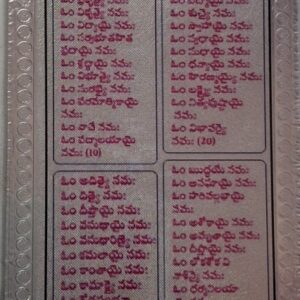 ఓం ప్రకృత్యై నమః
ఓం వికృత్యై నమః
ఓం విద్యాయై నమః
ఓం సర్వభూతహిత
ప్రదాయై నమః
ఓం శ్రద్ధాయై నమః
ఓం విభూత్యై నమః
ఓం సురభ్యై నమః
ఓం పరమాత్మికాయై
నమః
ఓం వాచే నమః
ఓం పద్మాలయాయై
నమః (10)
ఓం శుచ్యై నమః
ఓం స్వాహాయై నమః
ఓం స్వధాయై నమః
ఓం సుధాయై నమః
ఓం ధన్యాయై నమః
ఓం హిరణ్మయ్యై నమః
ఓం లక్ష్మ్యై నమః
ఓం నిత్యపుష్టాయై
నమః
ఓం విభావర్యై
నమః (20)
ఓం అదిత్యై నమః
ఓం దిత్యై నమః
ఓం దీప్తాయై నమః
ఓం వసుధాయై నమః
ఓం వసుధారిణ్యై నమః
ఓం కమలాయై నమః
ఓం కాంతాయై నమః
ఓం కామాక్ష్యై నమః
ఓం బుద్ధయే నమః
ఓం అనఘాయై నమః
ఓం హరివల్లభాయై
నమః
ఓం అశోకాయై నమః
ఓం అమృతాయై నమః
ఓం దీప్తాయై నమః
ఓం లోకశోక వి
నాశిన్యై నమః
ఓం ధర్మనిలయా